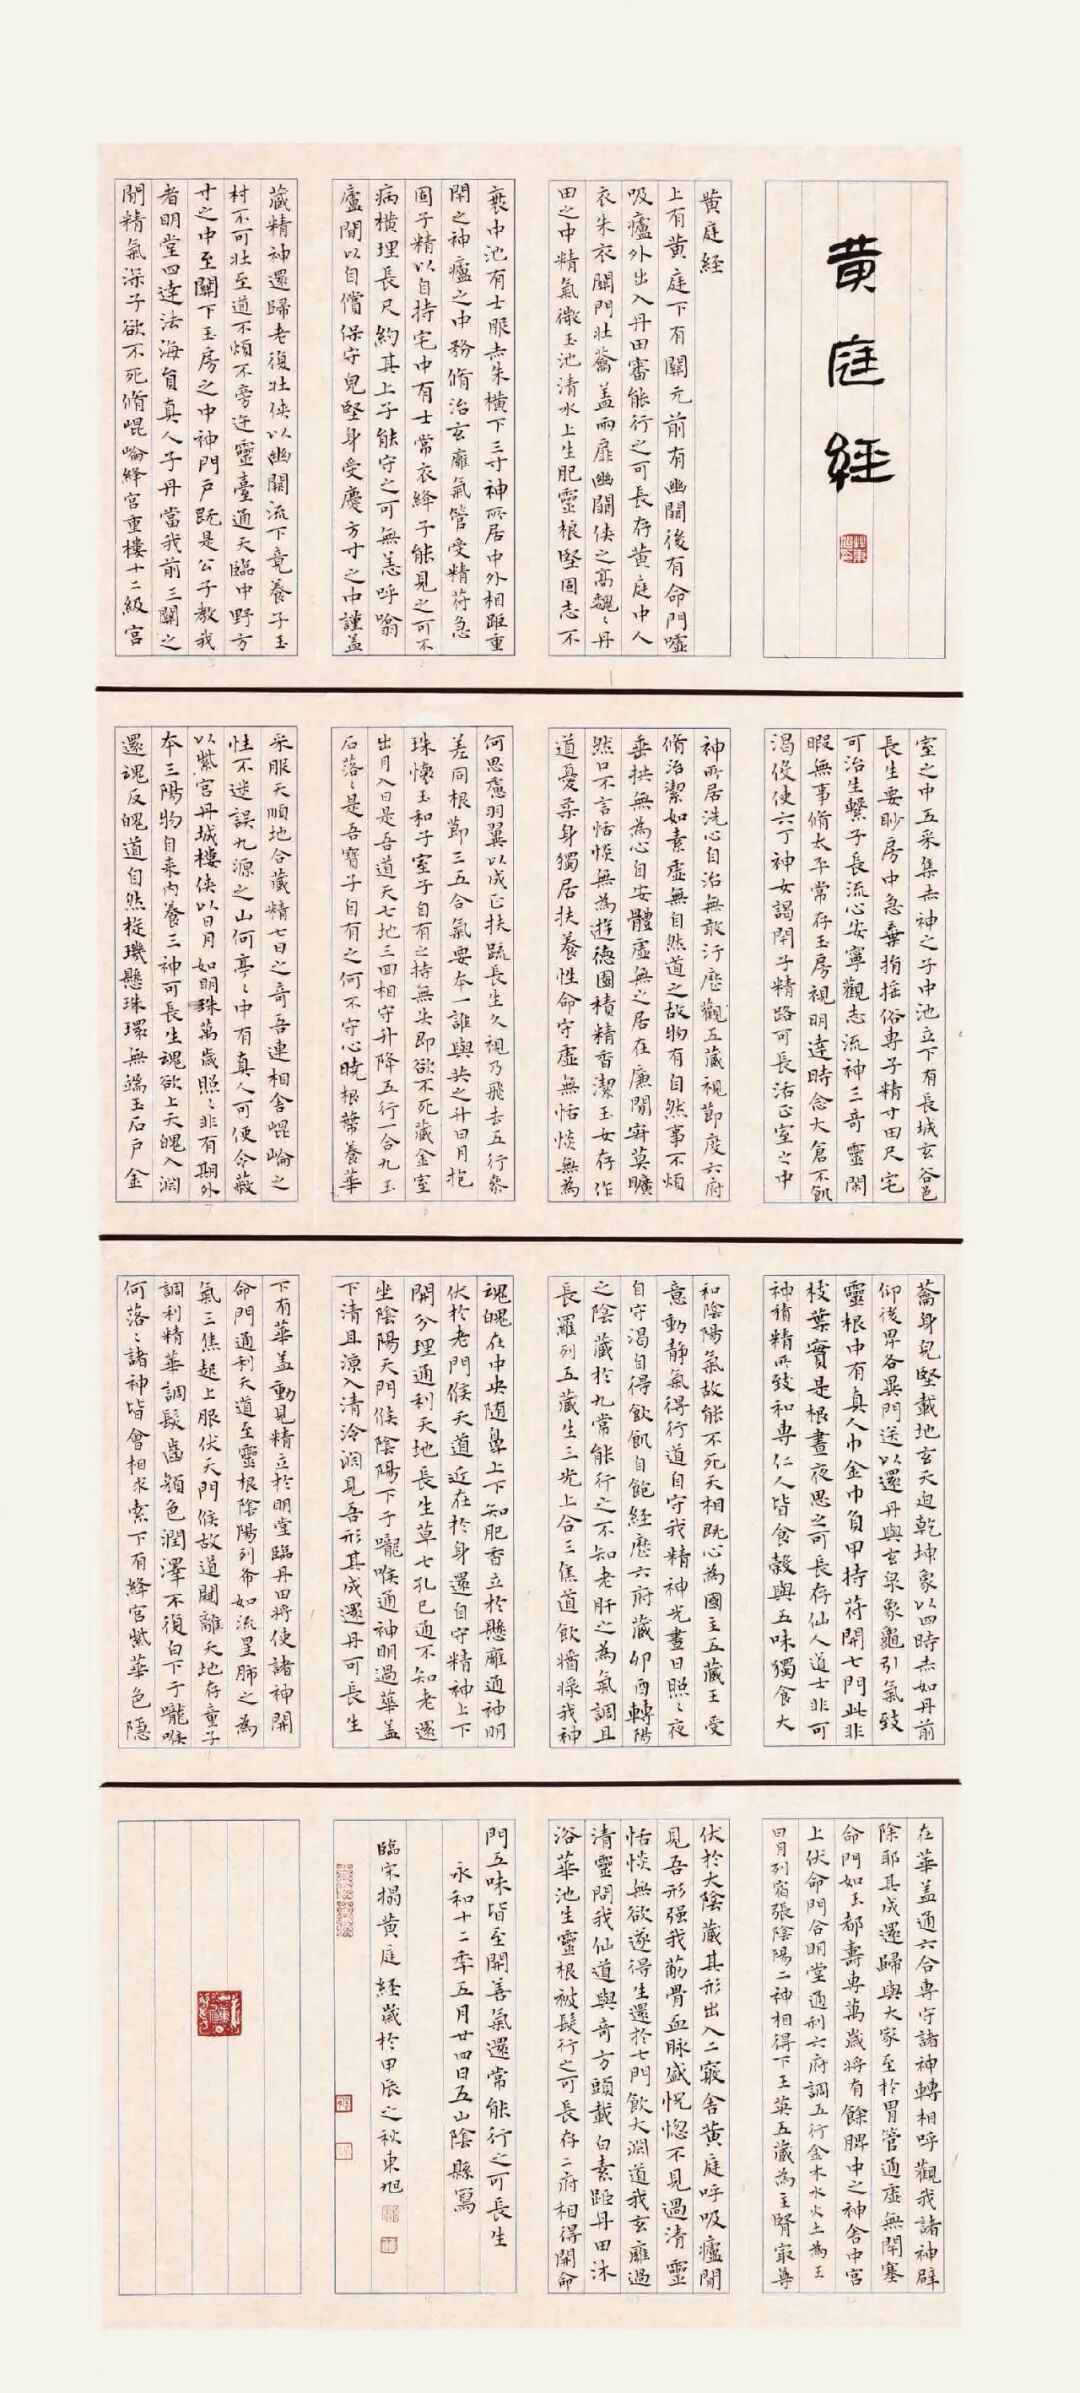 黄庭經
黄庭經
上有黄庭下有關元前有幽闕後有命門噓
吸廬外出入丹田審能行之可長存黄庭中人
衣朱衣關門壮蘥盖兩扉幽闕侠之高魏〻丹
田之中精氣微玉池清水上生肥靈根堅固志不
衰中池有士服赤朱横下三寸神所居中外相距重
閇之神廬之中務脩治玄廱氣管受精苻急
固子精以自持宅中有士常衣絳子能見之可不
病横理長尺約其上子能守之可無恙呼噏
廬間以自償保守皃堅身受慶方寸之中謹盖
藏精神還歸老復壮侠以幽闕流下竟養子玉
村不可壮至道不煩不旁迕靈臺通天臨中野方
寸之中至闕下玉房之中神門户既是公子教我
者明堂四達法海負真人子丹當我前三關之
間精氣深子欲不死脩崐崘絳宫重樓十二級宫
室之中五采集赤神之子中池立下有長城玄谷邑
長生要眇房中急棄捐揺俗専子精寸田尺宅
可治生繫子長流心安寧觀志流神三奇靈閑
暇無事脩太平常存玉房視明達時念大倉不飢
渴侵使六丁神女謁閇子精路可長活正室之中
神所居洗心自治無敢汙歴觀五藏視節度六府
脩治潔如素虚無自然道之故物有自然事不煩
垂拱無為心自安體虚無之居在廉間寂莫曠
然口不言恬惔無為遊徳園積精香潔玉女存作
道憂柔身獨居扶養性命守虚無恬惔無為
何思慮羽翼以成正扶疏長生久視乃飛去五行叅
差同根節三五合氣要本一誰與共之升日月抱
珠懐玉和子室子自有之持無失即欲不死藏金室
出月入日是吾道天七地三回相守升降五行一合九玉
石落〻是吾寶子自有之何不守心曉根蔕養華
采服天順地合藏精七日之奇吾連相舍崐崘之
性不迷誤九源之山何亭〻中有真人可使令蔽
以紫宫丹城樓侠以日月如明珠萬歲照〻非有期外
本三陽物自来内養三神可長生魂欲上天魄入淵
還魂反魄道自然旋璣懸珠環無端玉石户金
蘥身皃堅載地玄天迫乾坤象以四時赤如丹前
仰後卑各異門送以還丹與玄泉象龜引氣致
靈根中有真人巾金巾負甲持苻開七門此非
枝葉實是根晝夜思之可長存仙人道士非可
神積精所致和専仁人皆食榖與五味獨食大
和陰陽氣故能不死天相既心為國主五藏王受
意動静氣得行道自守我精神光晝日照〻夜
自守渴自得飲飢自飽経歴六府藏卯酉轉陽
之陰藏於九常能行之不知老肝之為氣調且
長羅列五藏生三光上合三焦道飲醬𤋎我神
魂魄在中央随鼻上下知肥香立於懸廱通神明
伏於老門候天道近在於身還自守精神上下
開分理通利天地長生草七孔已通不知老還
坐陰陽天門候陰陽下于嚨喉通神明過華盖
下清且凉入清泠淵見吾形其成還丹可長生
下有華盖動見精立於明堂臨丹田将使諸神開
命門通利天道至靈根陰陽列布如流星肺之為
氣三焦起上服伏天門候故道闚離天地存童子
調利精華調髮齒顔色潤澤不復白下于嚨喉
何落〻諸神皆會相求索下有絳宫紫華色隱
在華盖通六合専守諸神轉相呼觀我諸神辟
除耶其成還歸與大家至於胃管通虚無閇塞
命門如玉都壽専萬歲将有餘脾中之神舎中宫
上伏命門合明堂通利六府調五行金木水火土為王
日月列宿張陰陽二神相得下玉英五藏為主腎㝡尊
伏於大陰藏其形出入二竅舎黄庭呼吸廬間
見吾形强我筋骨血脉盛怳惚不見過清靈
恬惔無欲遂得生還於七門飲大淵道我玄廱過
清靈問我仙道與奇方頭載白素距丹田沐
浴華池生靈根被髮行之可長存二府相得開命
門五味皆至開善氣還常能行之可長生
永和十二年五月廿四日五山陰縣寫
臨宋搨黄庭經歲於甲辰之秋東旭